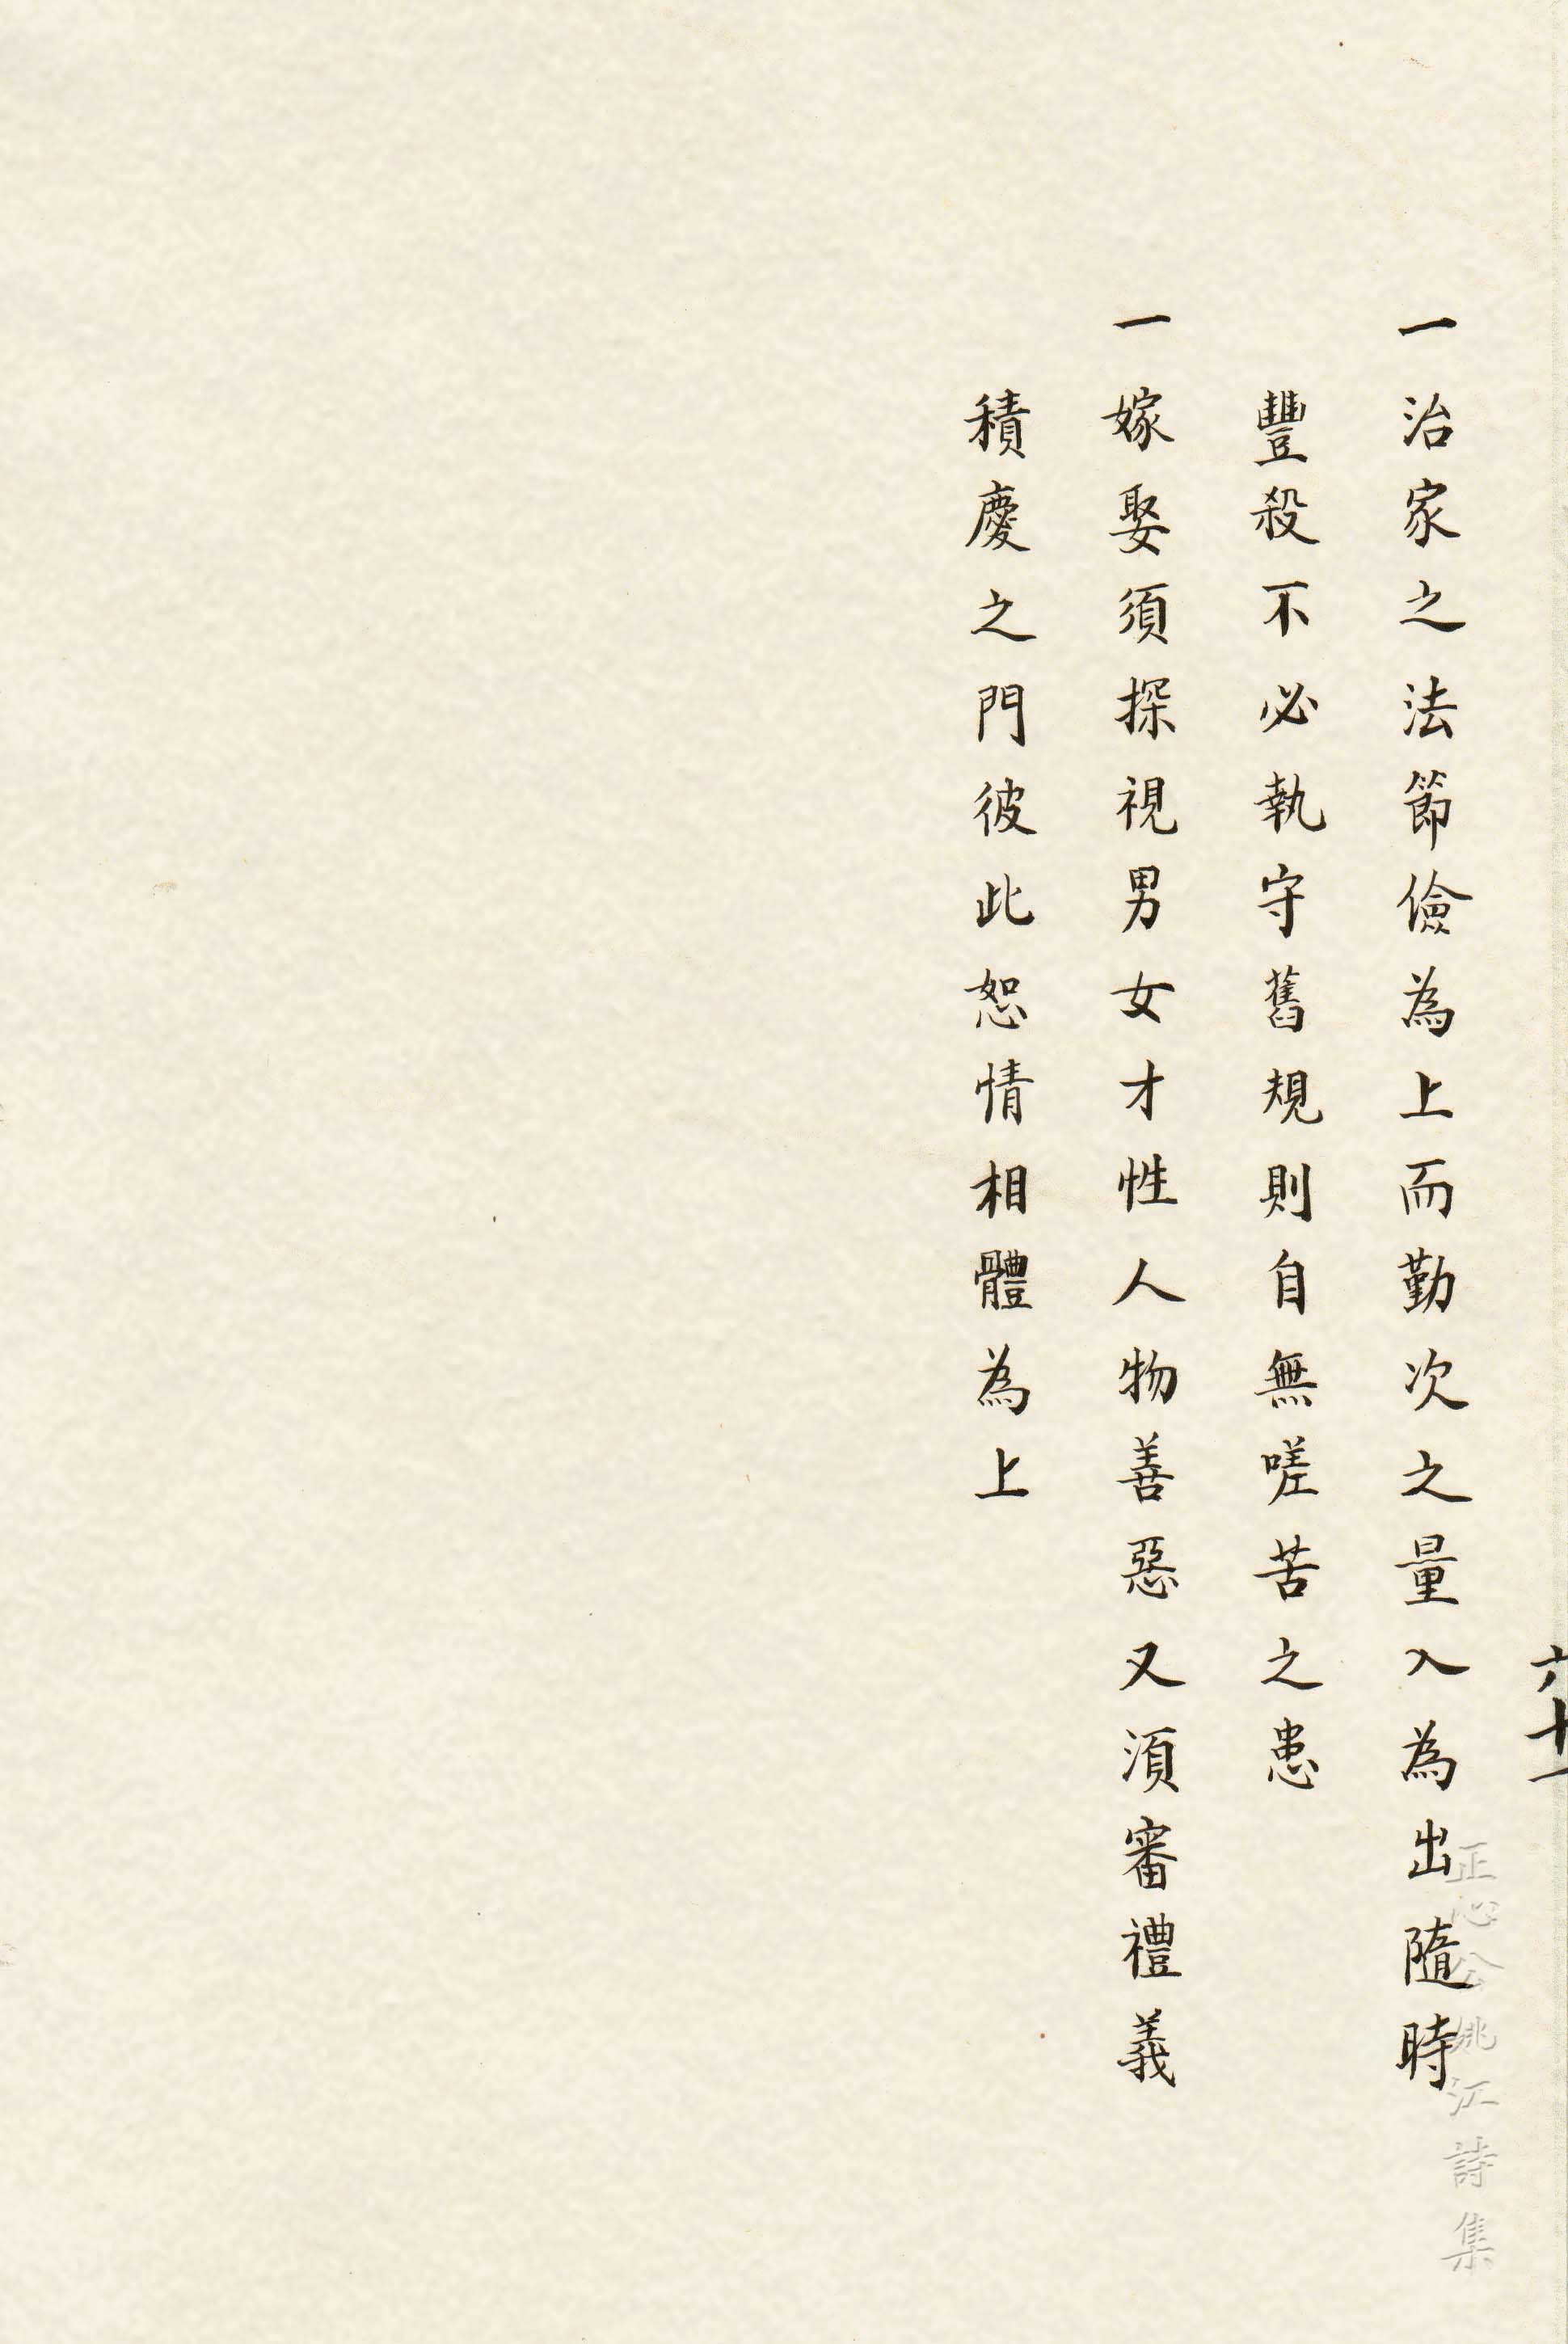 六十一
一治家之法節儉為上而勤次之量入為出隨時
豐殺不必執守舊規則自無嗟苦之患
一嫁娶須探視男女才性人物善惡又須審禮義
積慶之門彼此恕情相體為上
正心公姚江詩集